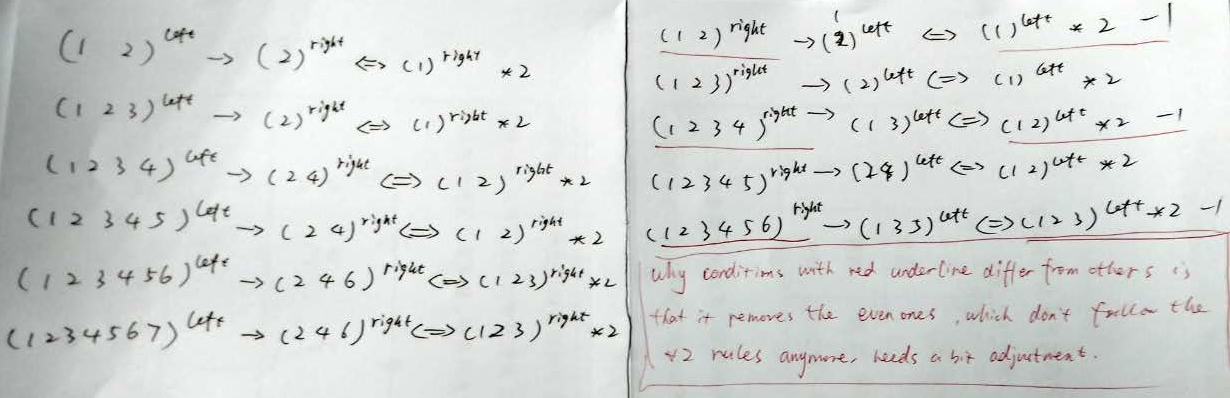 (1 2)^left → (2)^right ⇔ (1)^right *2
(1 2 3)^left → (2)^right ⇔ (1)^right *2
(1 2 3 4)^left → (2 4)^right ⇔ (1 2)^right *2
(1 2 3 4 5)^left → (2 4)^right ⇔ (1 2)^right *2
(1 2 3 4 5 6)^left → (2 4 6)^right ⇔ (1 2 3)^right *2
(1 2 3 4 5 6 7)^left → (2 4 6)^right ⇔ (1 2 3)^right *2
(1 2)^right → (1)^left ⇔ (1)^left * 2 -1
(1 2 3)^right → (2)^left ⇔ (1)^left *2
(1 2 3 4)^right → (1 3)^left ⇔ (1 2)^left *2 -1
(1 2 3 4 5)^right → (2 4)^left ⇔ (1 2)^left *2
(1 2 3 4 5 6)^right → (1 3 5)^left ⇔ (1 2 3)^left *2 -1
Why conditions with red underline differ from others is
that it removes the even ones, which don't follow the
*2 rules anymore, needs a bit adjustment.